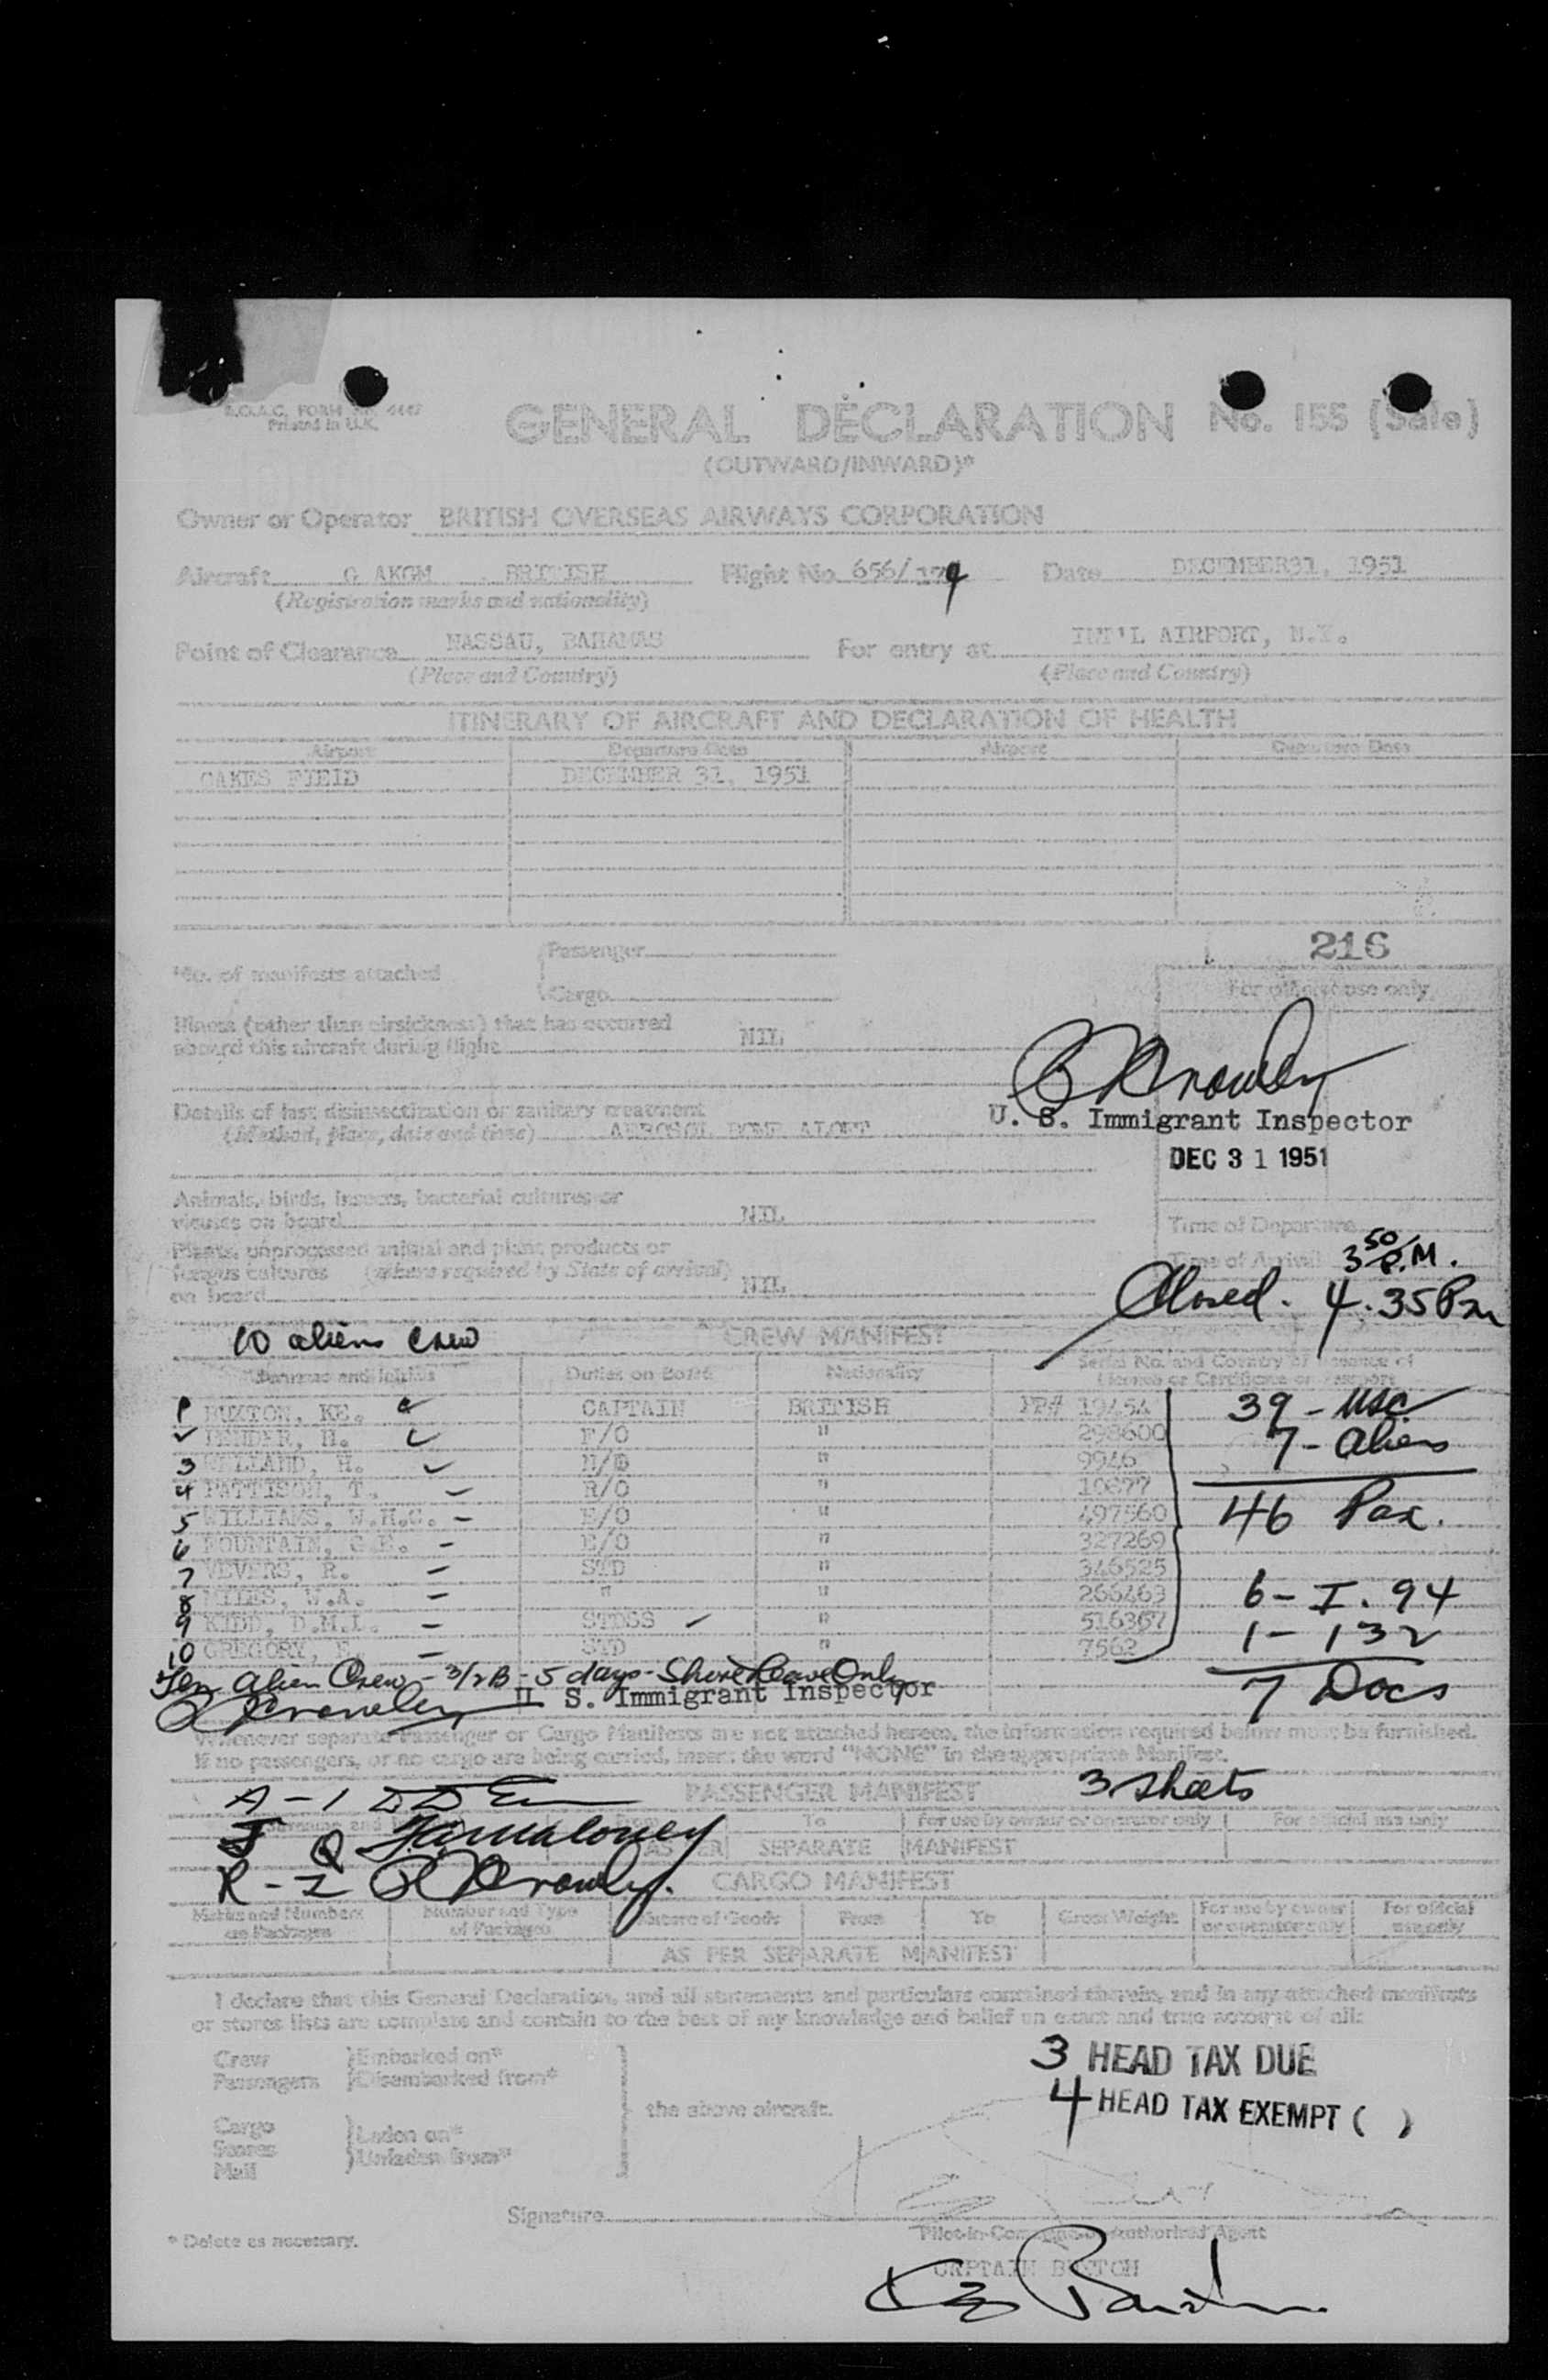 B.O.A.C. FORM 4447
Printed in U.K.
GENERAL DECLARATION No. 155 (Sale)
(OUTWARD/INWARD)*
Owner or Operator BRITISH OVERSEAS AIRWAYS CORPORATION
Aircraft G AKGM BRITISH Flight No. 656/ Date DECEMBER31, 1951
(Registration marks and nationality)
Point of Clearance NASSAU, BAHAMAS For entry at INT'L AIRPORT, N.Y.
(Place and Country) (Place and Country)
ITINERARY OF AIRCRAFT AND DECLARATION OF HEALTH
Airport Departure Date Airport Departure Date
OAKES FIELD DECEMBER 31, 1951
216
No. of manifests attached Passenger
Cargo
For official use only
Illness (other than airsickness) that has occurred
aboard this aircraft during flight NIL
Details of last disinsectization or sanitary treatment
(Method, place, date and time) AEROSOL BOMB ALOFT
U. S. Immigrant Inspector
DEC 31 1951
Animals, birds, insects, bacterial cultures or
viruses on board NIL
Time of Departure
Plants, unprocessed animal and plant products or
fungus cultures (where required by State of arrival)
on board NIL
Time of Arrival 3 50 P.M.
Closed. 4.35 Pm
10 aliens crew
CREW MANIFEST
Surname and Initials Duties on Board Nationality Serial No. and Country of Issuance of
License or Certificate or Passport
BUXTON, KE. CAPTAIN BRITISH PP# 19454
H. F/O " 298600
3 H. N/O " 9946
4 PATTISON, T. R/O " 10677
5 WILLIAMS, W.H.C. E/O " 497560
6 FOUNTAIN, G.E. E/O " 327269
7 VEVERS, R. STD " 346525
8 MILES, W.A. " " 266463
9 KIDD, D.M.I. STDSS " 516367
10 GREGORY, F. STD " 7562
39 - USC
7 - Aliens
46 Pax.
6 - I. 94
1 - 132
7 Docs
Ten Alien Crew - 3/2B - 5 days - Shore Leave Only
U. S. Immigrant Inspector
Whenever separate Passenger or Cargo Manifests are not attached hereto, the information required below must be furnished.
If no passengers, or no cargo are being carried, insert the word "NONE" in the appropriate Manifest.
A - 1
PASSENGER MANIFEST 3 sheets
To For use by owner or operator only For official use only
AS PER SEPARATE MANIFEST
R - 2
CARGO MANIFEST
Marks and Numbers on Packages Number and Type of Packages Nature of Goods From To Gross Weight For use by owner or operator only For official use only
AS PER SEPARATE MANIFEST
I declare that this General Declaration, and all statements and particulars contained therein, and in any attached manifests
or stores lists are complete and contain to the best of my knowledge and belief an exact and true account of all:
Crew Embarked on*
Passengers Disembarked from*
the above aircraft.
Cargo
Stores
Mail
Laden on*
Unladen from*
3 HEAD TAX DUE
4 HEAD TAX EXEMPT ( )
Signature
Pilot-in-Command Authorised Agent
* Delete as necessary.
CAPTAIN BUXTON